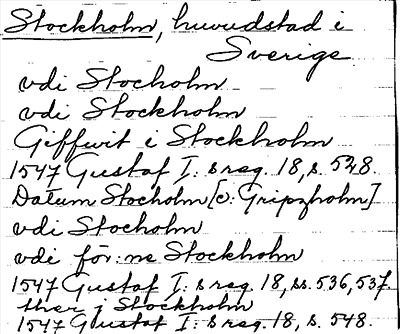 Stockholm, huvudstad i
Sverige
vdi Stocholm
vdi Stockholm
Giffuit i Stockholm
1547 Gustaf I: s reg. 18, s. 528.
Datum Stocholm [o: Gripzholm]
vdi Stocholm
vdi för:ne Stockholm
1547 Gustaf I: s reg. 18, ss. 536, 537.
ther j Stockholm
1547 Gustaf I: s reg. 18, s. 548.